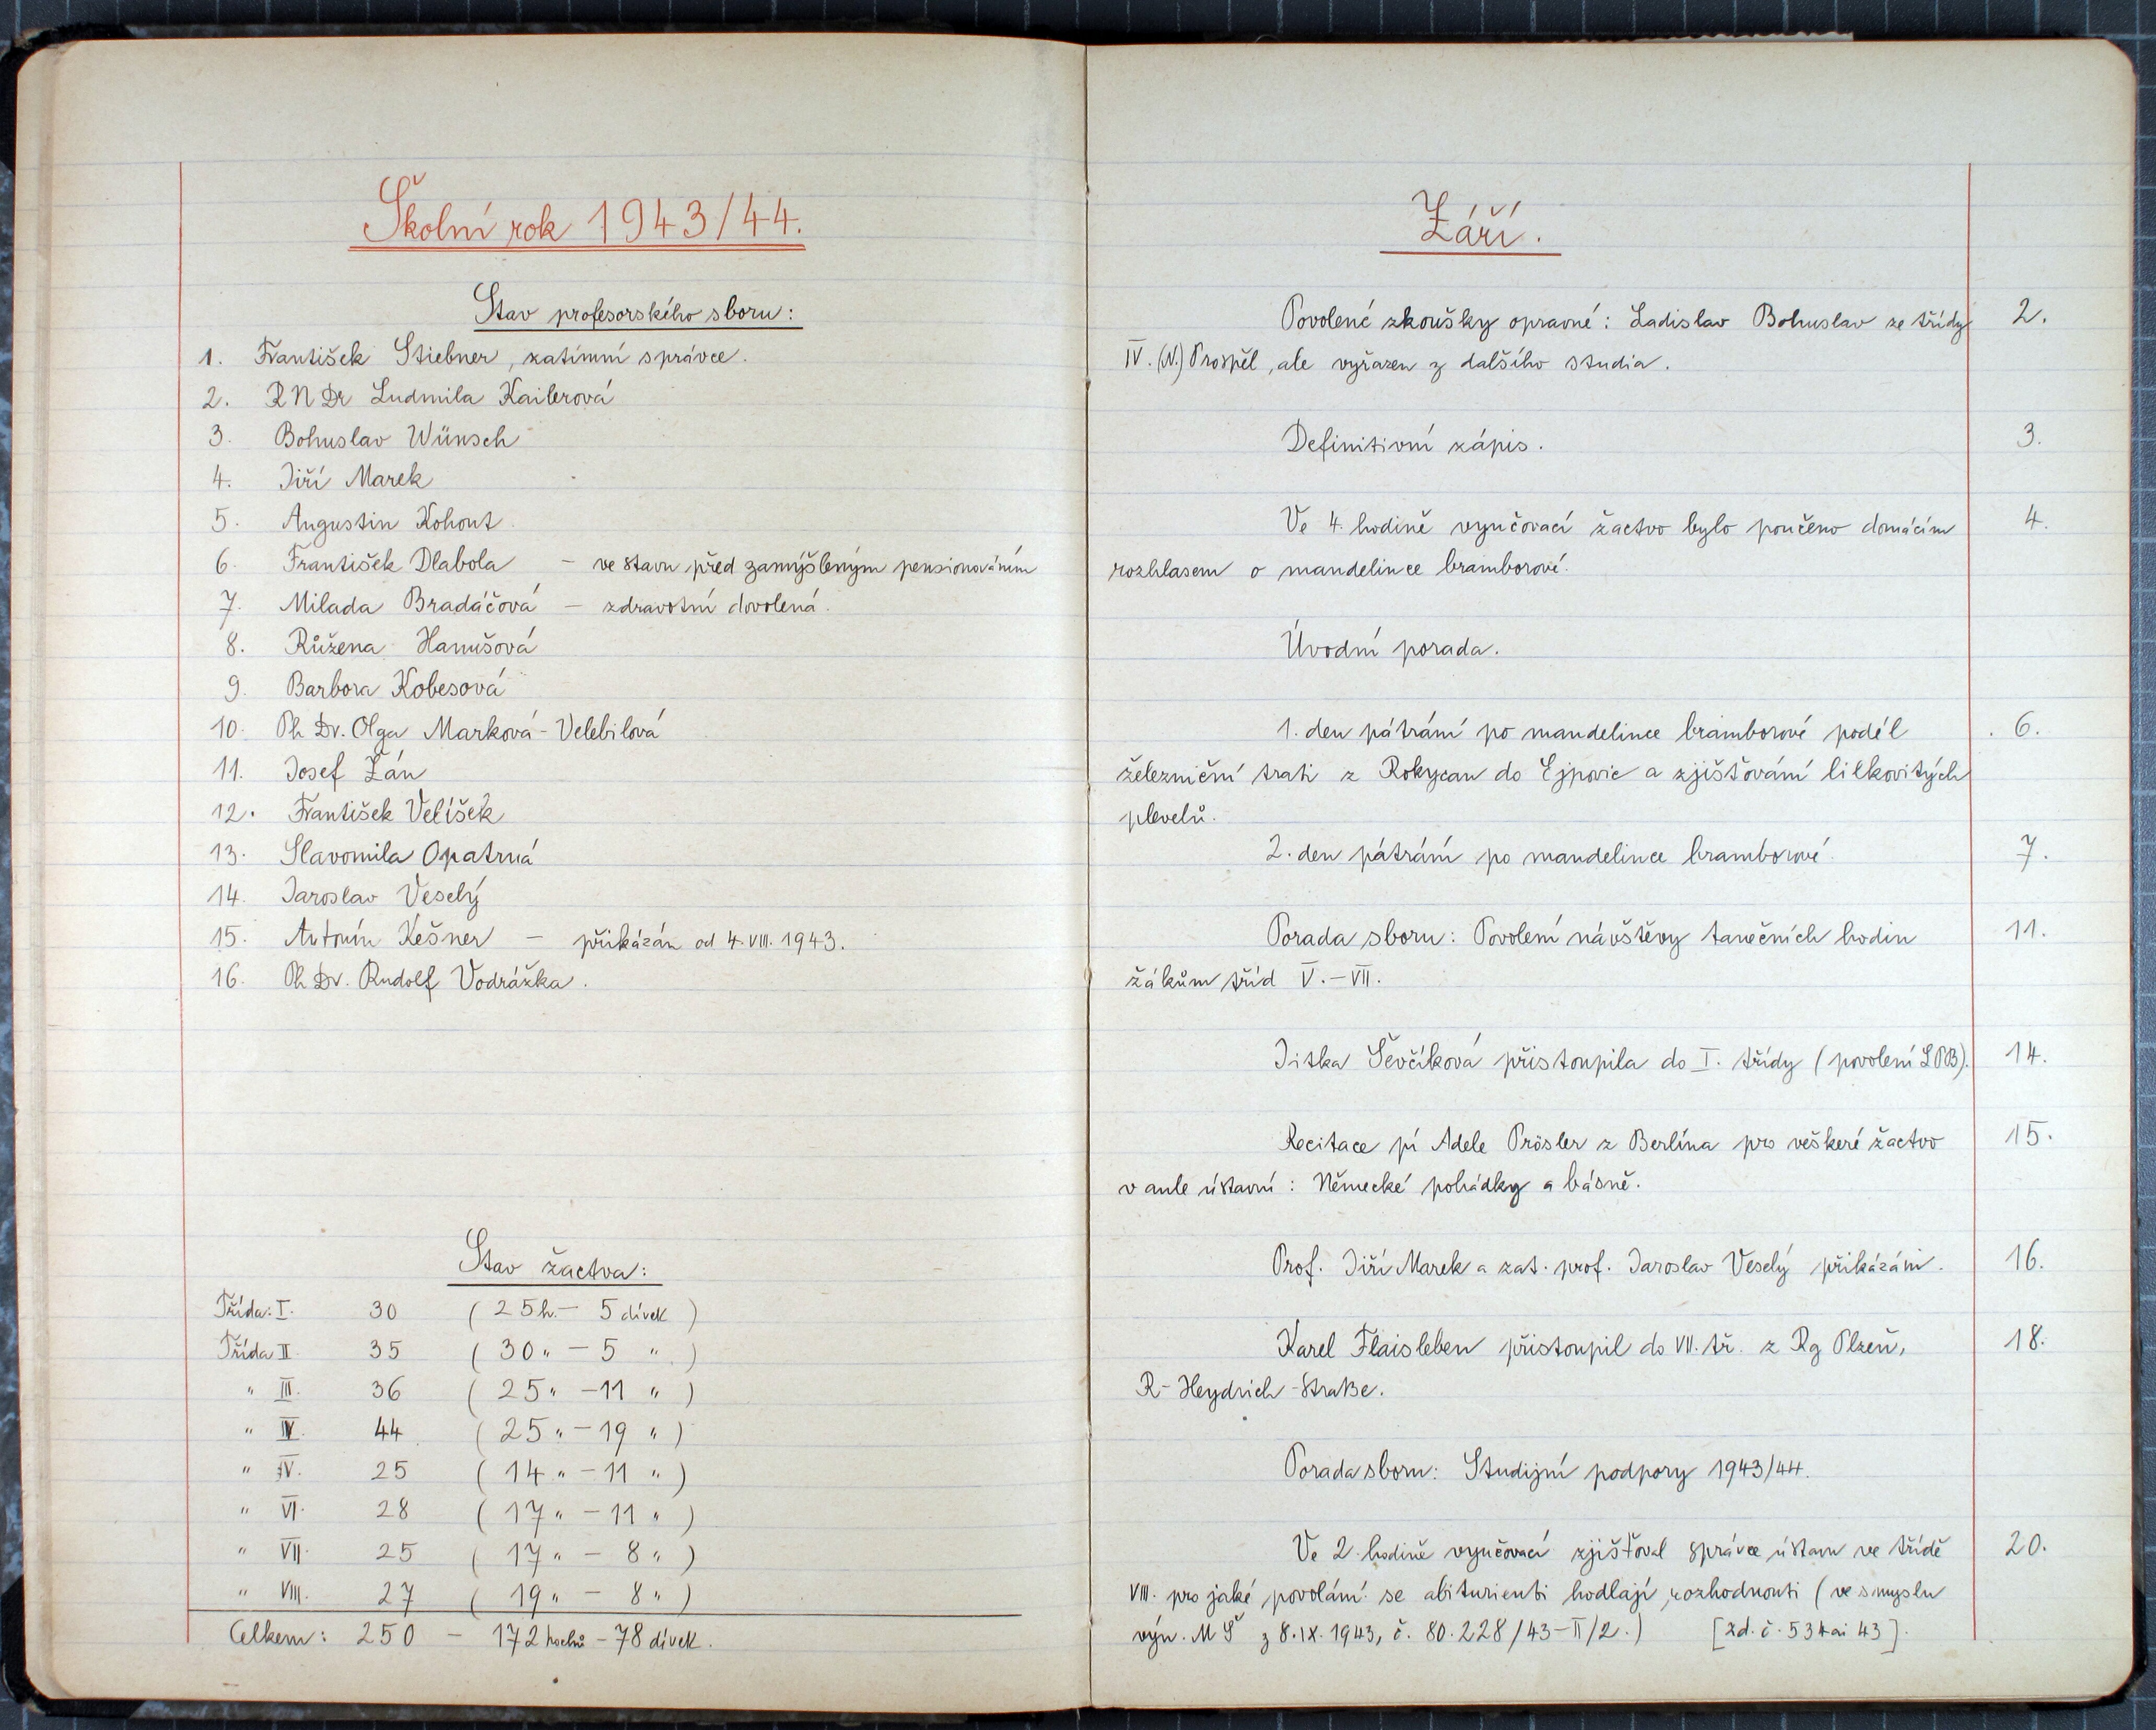 Školní rok 1943/44.
Stav profesorského sboru:
1. František Stiebner, zatímní správce.
2. RN Dr Ludmila Kailerová
3. Bohuslav Wünsch
4. Jiří Marek
5. Augustin Kohout
6. František Dlabola – ve stavu před zamýšleným pensionováním
7. Milada Bradáčová – zdravotní dovolená.
8. Růžena Hanušová
9. Barbora Kobesová
10. Ph Dr. Olga Marková-Velebilová
11. Josef Žán
12. František Velíšek
13. Slavomila Opatrná
14. Jaroslav Veselý
15. Antonín Kešner – přikázán od 4.VIII.1943.
16. Ph Dr. Rudolf Vodrážka.
Stav žactva:
Třída: I. 30 (25 h. – 5 dívek)
Třída II. 35 (30 " – 5 ")
" III. 36 (25 " – 11 ")
" IV. 44 (25 " – 19 ")
" V. 25 (14 " – 11 ")
" VI. 28 (17 " – 11 ")
" VII. 25 (17 " – 8 ")
" VIII. 27 (19 " – 8 ")
Celkem: 250 – 172 hochů – 78 dívek.
Září.
Povolené zkoušky opravné: Ladislav Bohuslav ze třídy 2.
IV. (N.) Prospěl, ale vyřazen z dalšího studia.
Definitivní zápis. 3.
Ve 4. hodině vyučovací žactvo bylo poučeno domácím 4.
rozhlasem o mandelince bramborové.
Úvodní porada.
1. den pátrání po mandelince bramborové podél 6.
železniční trati z Rokycan do Ejpovic a zjišťování lilkovitých
plevelů.
2. den pátrání po mandelince bramborové. 7.
Porada sboru: Povolení návštěvy tanečních hodin 11.
žákům tříd V.–VII.
Jitka Ševčíková přistoupila do I. třídy (povolení LPB). 14.
Recitace pí Adele Prösler z Berlína pro veškeré žactvo 15.
v aule ústavní: Německé pohádky a básně.
Prof. Jiří Marek a zat. prof. Jaroslav Veselý přikázáni. 16.
Karel Flaisleben přistoupil do VII. tř. z Rg Plzeň, 18.
R-Heydrich-Straße.
Porada sboru: Studijní podpory 1943/44.
Ve 2. hodině vyučovací zjišťoval správce ústavu ve třídě 20.
VIII. pro jaké povolání se abiturienti hodlají rozhodnouti (ve smyslu
výn. MŠ z 8.IX.1943, č. 80.228/43–II/2.) [zd. č. 534 ai 43].